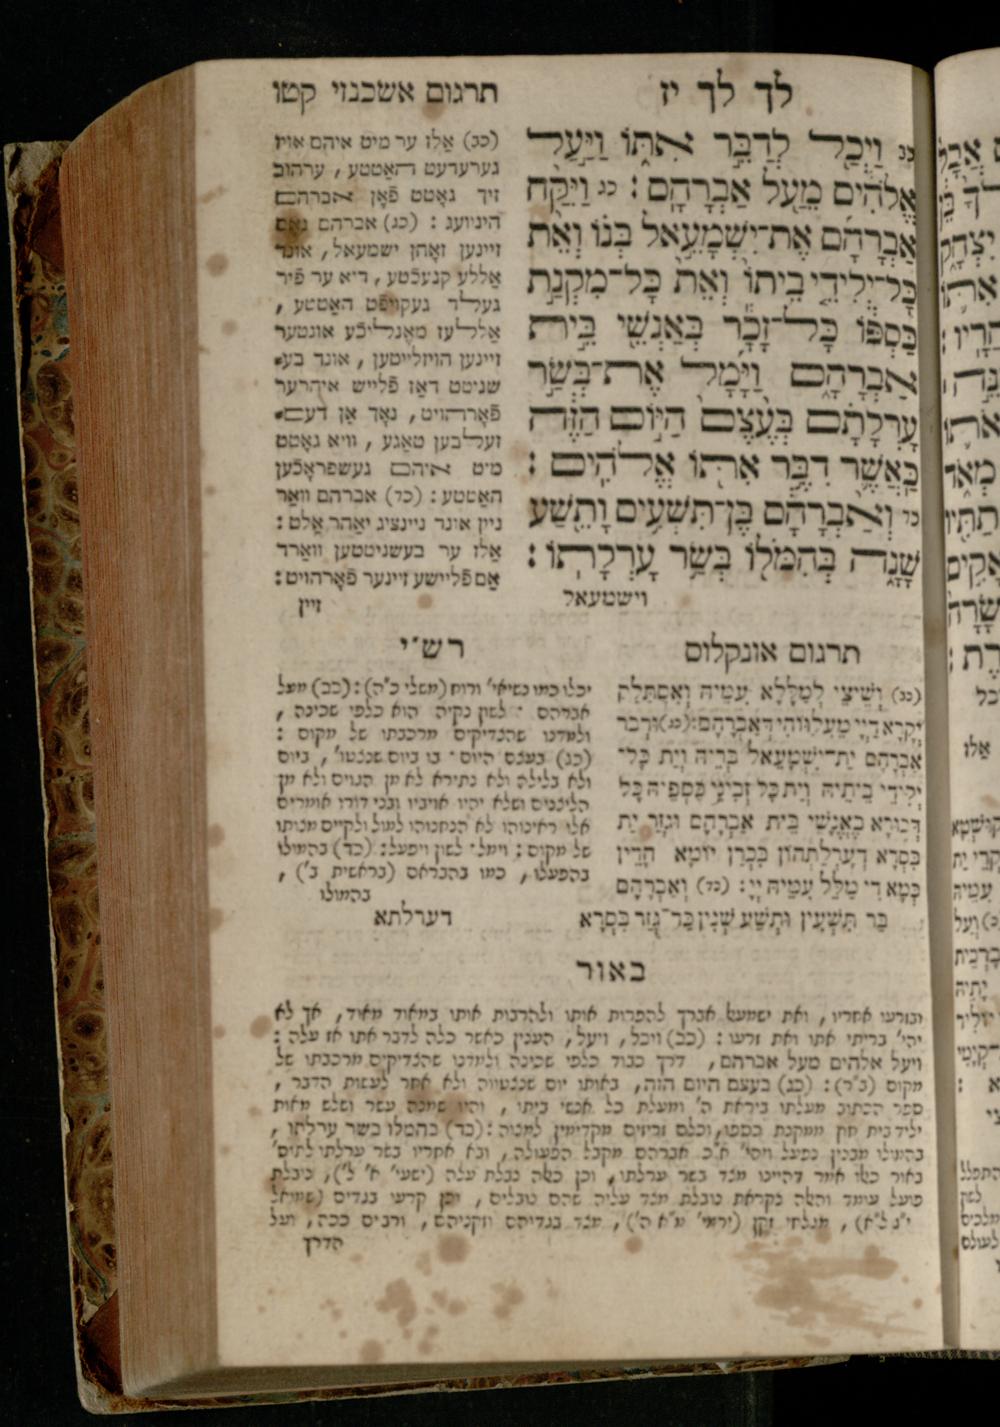 לך לך יז
תרגום אשכנזי קטו
כב וַיְכַל לְדַבֵּר אִתּוֹ וַיַּעַל
אֱלֹהִים מֵעַל אַבְרָהָם : כג וַיִּקַּח
אַבְרָהָם אֶת־יִשְׁמָעֵאל בְּנוֹ וְאֵת
כָּל־יְלִידֵי בֵיתוֹ וְאֵת כָּל־מִקְנַת
כַּסְפּוֹ כָּל־זָכָר בְּאַנְשֵׁי בֵּית
אַבְרָהָם וַיָּמָל אֶת־בְּשַׂר
עָרְלָתָם בְּעֶצֶם הַיּוֹם הַזֶּה
כַּאֲשֶׁר דִּבֶּר אִתּוֹ אֱלֹהִים :
כד וְאַבְרָהָם בֶּן־תִּשְׁעִים וָתֵשַׁע
שָׁנָה בְּהִמֹּלוֹ בְּשַׂר עָרְלָתוֹ :
וישמעאל
(כב) אַלז ער מיט איהם אויז
גערעדעט האַטטע , ערהוב
זיך גאָטט פֿאָן אברהם
הינויעג : (כג) אברהם נאַם
זיינען זאָהן ישמעאל , אונד
אַללע קנעכֿטע , דיא ער פֿיר
געלד געקויפֿט האַטטע ,
אַללעז מאֶנליכֿע אונטער
זיינען הויזלייטען , אונד בע⸗
שניטט דאַז פֿלייש איהרער
פֿאָרהויט , נאָך אַן דעמ⸗
זעלבען טאַגע , וויא גאָטט
מיט איהם געשפראָכֿען
האַטטע : (כד) אברהם וואַר
ניין אונד ניינציג יאַהר אַלט :
אַלז ער בעשניטטען וואַרד
אַם פֿליישע זיינער פֿאָרהויט :
זיין
תרגום אונקלוס
(כב) וְשֵׁיצִי לְמַלָּלָא עִמֵּיהּ וְאִסְתַּלַּק
יְקָרָא דַיְיָ מֵעִלָּווֹהִי דְּאַבְרָהָם : (כג) וּדְבַר
אַבְרָהָם יַת־יִשְׁמָעֵאל בְּרֵיהּ וְיַת כָּל־
יְלִידֵי בֵיתֵיהּ וְיַת כָּל זְבִינֵי כַסְפֵּיהּ כָּל
דְּכוּרָא בֶּאֱנָשֵׁי בֵּית אַבְרָהָם וּגְזַר יַת
בִּסְרָא דְעָרְלַתְהוֹן בִּכְרַן יוֹמָא הָדֵין
כְּמָא דִי מַלֵּל עִמֵּיהּ יְיָ : (כד) וְאַבְרָהָם
בַּר תִּשְׁעִין וּתְשַׁע שְׁנִין כַּד־גְּזַר בִּסְרָא
דערלתא
רש״י
יכלו כמו נשיאי׳ ורוח (משלי כ״ה) : (כב) מעל
אברהם · לשון נקיה הוא כלפי שכינה ,
ולמדנו שהצדיקים מרכבתו של מקום :
(כג) בעצם היום · בו ביום שנצטוו׳ , ביום
ולא בלילה ולא נתירא לא מן הגוים ולא מן
הליצנים ושלא יהיו אויביו ובני דורו אומרים
אלו ראינוהו לא הנחנוהו למול ולקיים מצותו
של מקום : וימל · לשון ויפעל : (כד) בהמולו
בהפעלו , כמו בהבראם (בראשית ב׳) ,
בהמולו
באור
ובזרעו אחריו , ואת ישמעאל אברך להפרות אותו ולהרבות אותו במאוד מאוד , אך לא
יהי׳ בריתי אתו ואת זרעו : (כב) ויכל , ויעל , הענין כאשר כלה לדבר אתו אז עלה :
ויעל אלהים מעל אברהם , דרך כבוד כלפי שכינה ולמדנו שהצדיקים מרכבתו של
מקום (ב״ר) : (כג) בעצם היום הזה , באותו יום שנצטווה ולא אחר לעשות הדבר ,
ספר הכתוב מעלתו ביראת ה׳ ומעלת כל אנשי ביתו , והיו שמנה עשר ושלש מאות
יליד בית חוץ ממקנת כספו , וכלם זריזים מקדימין למצוה : (כד) בהמלו בשר ערלתו ,
בהמולו מבנין נפעל ויחס׳ א״כ אברהם מקבל הפעולה , ובא אחריו בשר ערלתו לתיס׳
באור כאו אמר דהיינו מצד בשר ערלתו , וכן כאלה נבלת עלה (ישעי׳ א׳ ל׳) , נובלת
פועל עומד והאלה נקראת נובלת מצד עליה שהם נובלים , וכן קרועי בגדים (שמואל
י״ג ל״א) , מגלחי זקן (ירמי׳ מ״א ה׳) , מצד בגדיהם וזקניהם , ורבים ככה , ועל
הדרך